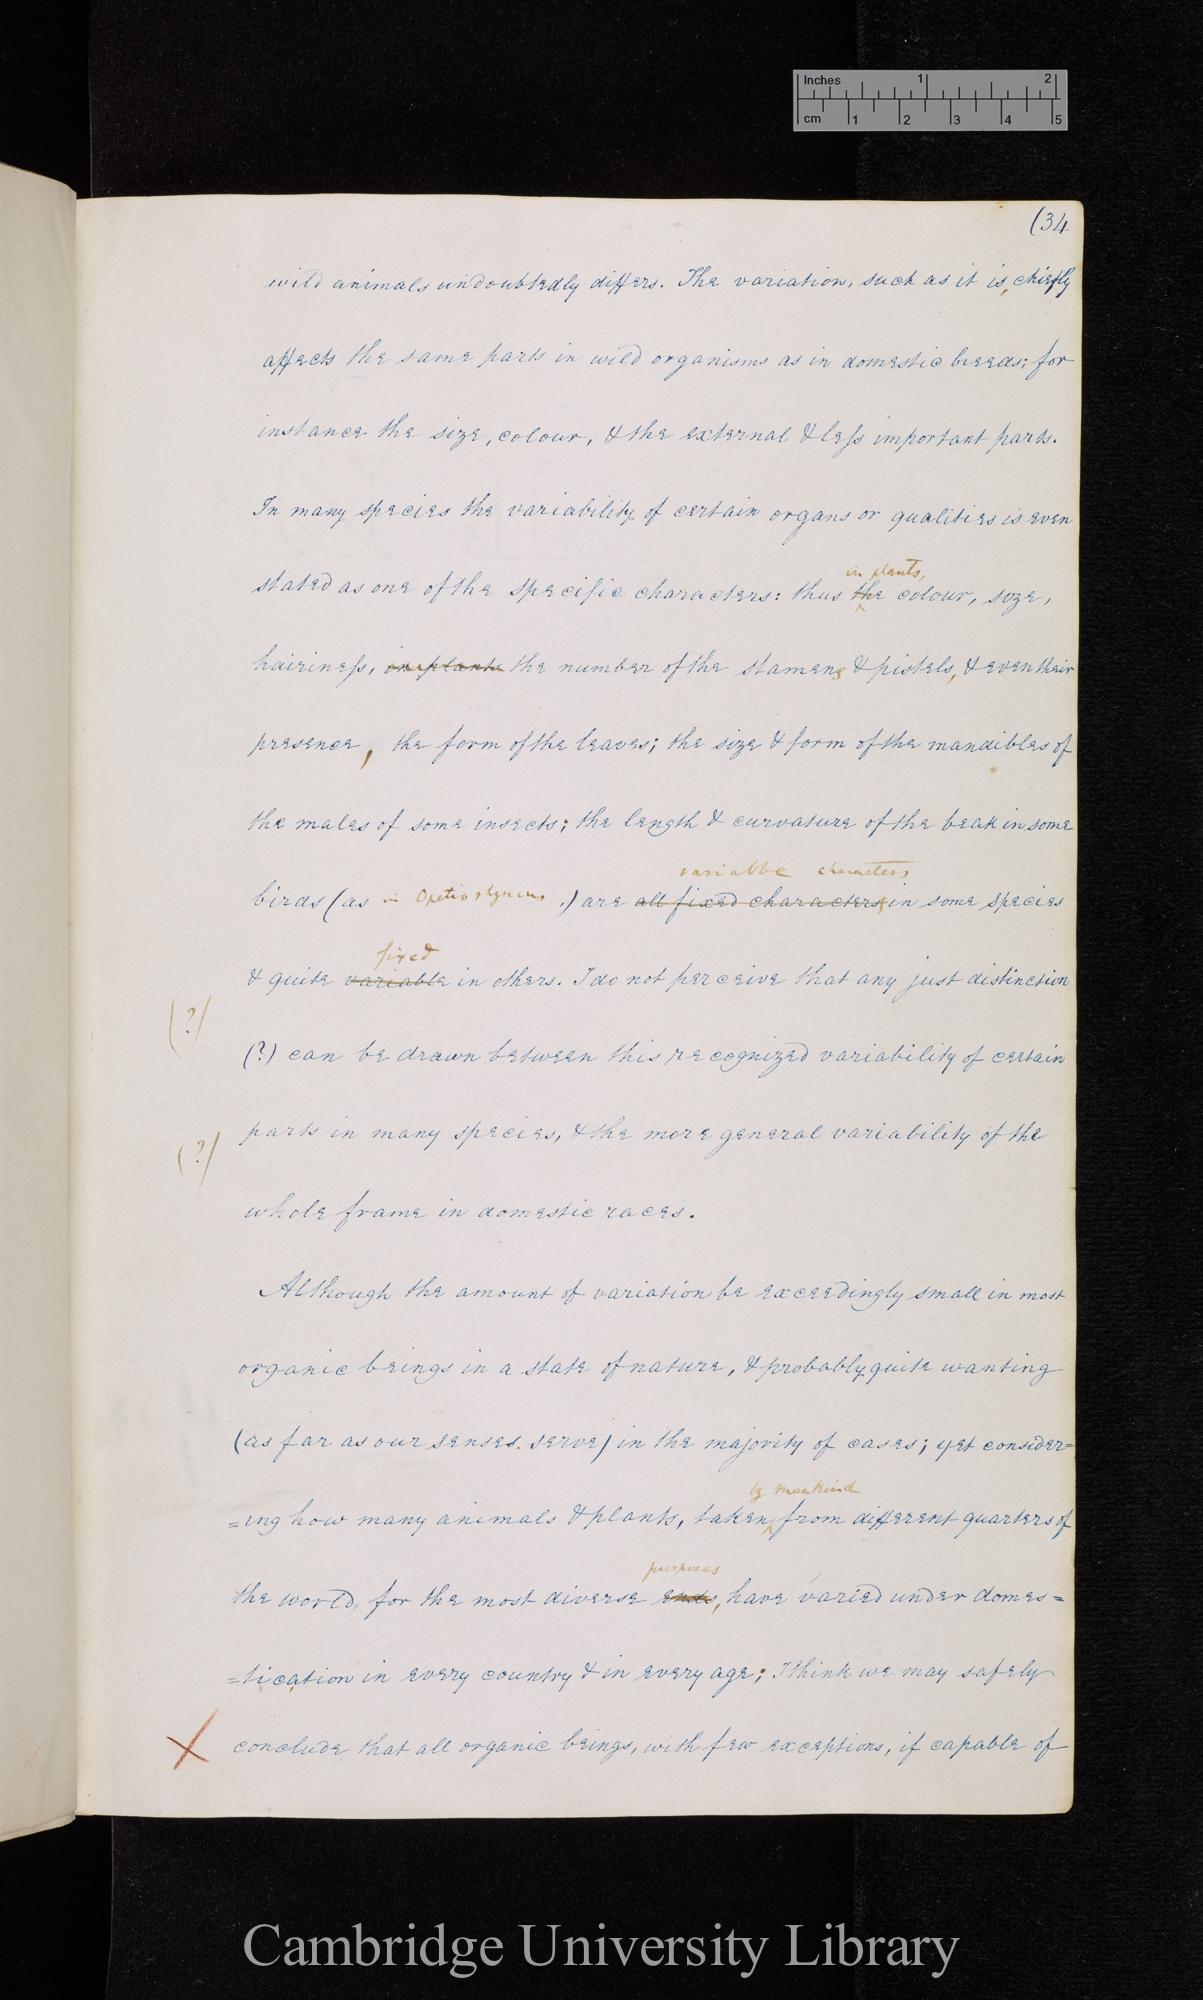 Inches 1 2
cm 1 2 3 4 5
(34
wild animals undoubtedly differs. The variation, such as it is, chiefly
affects the same parts in wild organisms as in domestic breeds; for
instance the size, colour, & the external & less important parts.
In many species the variability of certain organs or qualities is even
in plants,
stated as one of the specific characters: thus the colour, size,
hairiness, in plants the number of the stamens & pistels, & even their
presence, the form of the leaves; the size & form of the mandibles of
the males of some insects; the length & curvature of the beak in some
variable characters
birds (as in Opetiorhyncus,) are all fixed characters in some species
fixed
& quite variable in others. I do not perceive that any just distinction
(?)
(?) can be drawn between this recognized variability of certain
parts in many species, & the more general variability of the
(?)
whole frame in domestic races.
Although the amount of variation be exceedingly small in most
organic beings in a state of nature, & probably quite wanting
(as far as our senses serve) in the majority of cases; yet consider=
by mankind
=ing how many animals & plants, taken from different quarters of
purposes
the world, for the most diverse ends, have varied under domes=
=tication in every country & in every age; I think we may safely
X conclude that all organic beings, with few exceptions, if capable of
Cambridge University Library